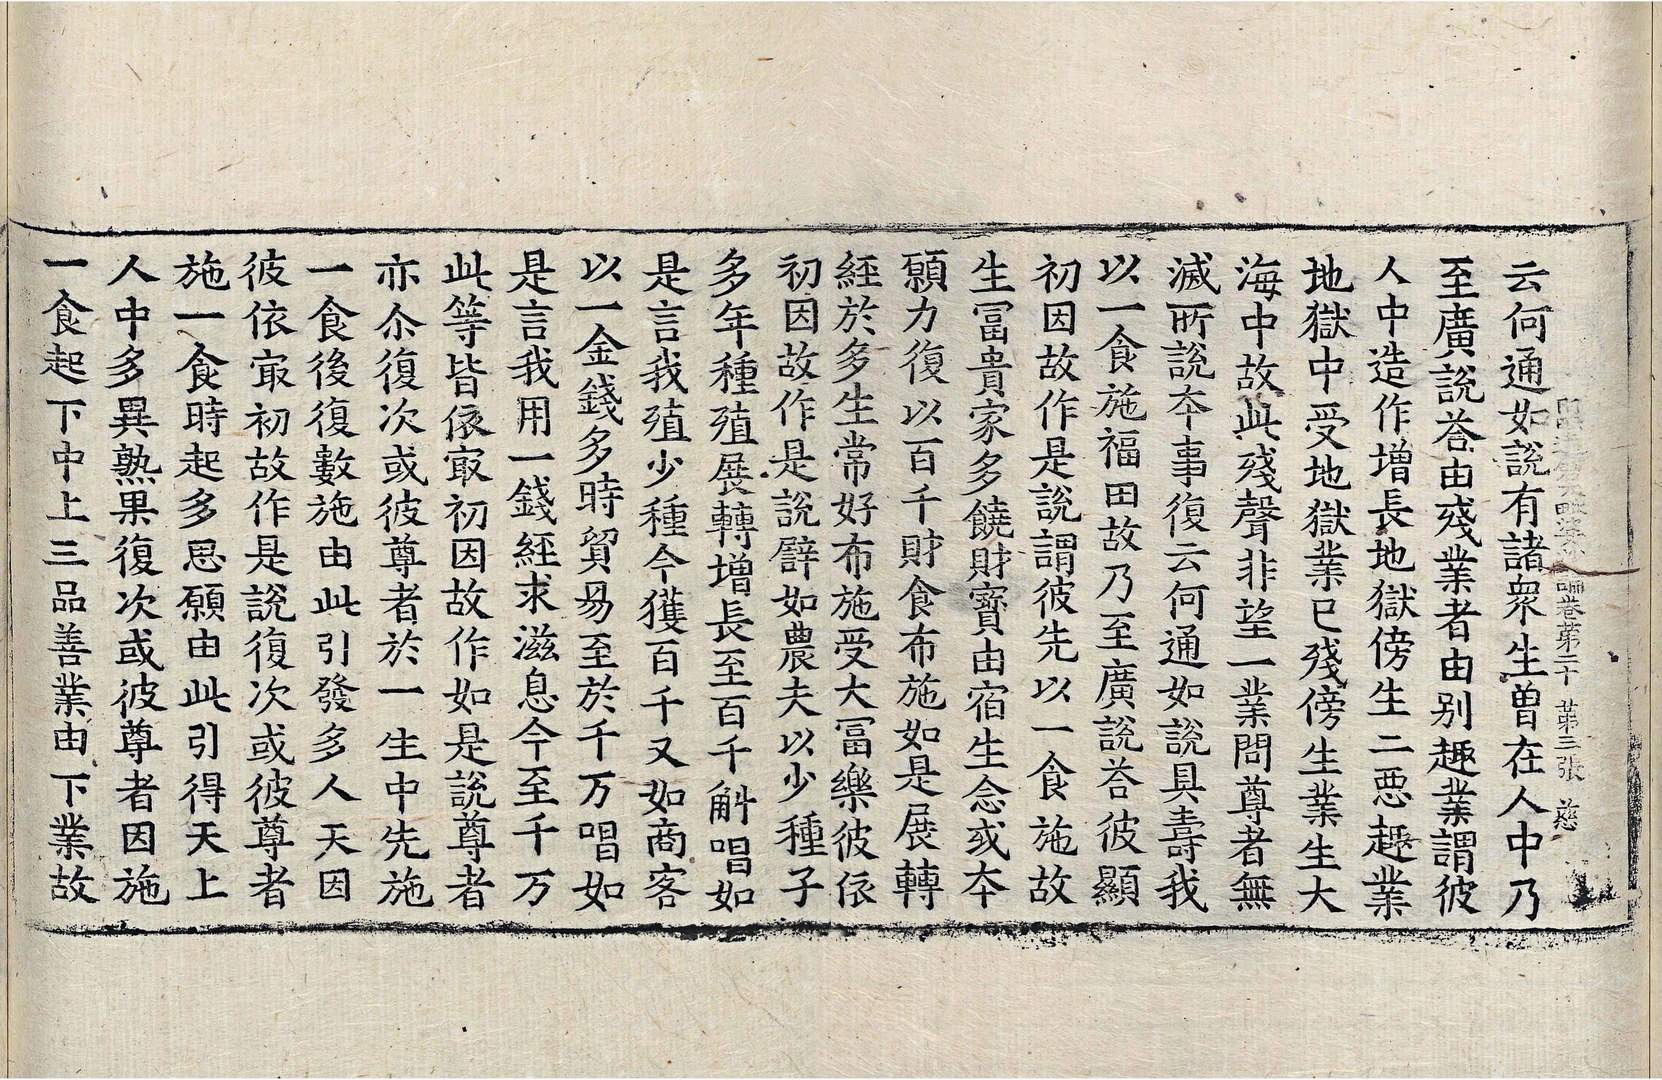 論卷第二十 第三張 慈
云何通如說有諸衆生曽在人中乃
至廣說荅由殘業者由別趣業謂彼
人中造作增長地獄傍生二惡趣業
地獄中受地獄業已殘傍生業生大
海中故此殘聲非望一業問尊者無
滅所說夲事復云何通如說具壽我
以一食施福田故乃至廣說荅彼顯
初因故作是說謂彼先以一食施故
生冨貴家多饒財寳由宿生念或夲
願力復以百千財食布施如是展轉
經於多生常好布施受大冨樂彼依
初因故作是說譬如農夫以少種子
多年種殖展轉增長至百千斛唱如
是言我殖少種今獲百千又如商客
以一金錢多時貿易至於千万唱如
是言我用一錢經求滋息今至千万
此等皆依㝡初因故作如是說尊者
亦尒復次或彼尊者於一生中先施
一食後復數施由此引發多人天因
彼依㝡初故作是說復次或彼尊者
施一食時起多思願由此引得天上
人中多異熟果復次或彼尊者因施
一食起下中上三品善業由下業故